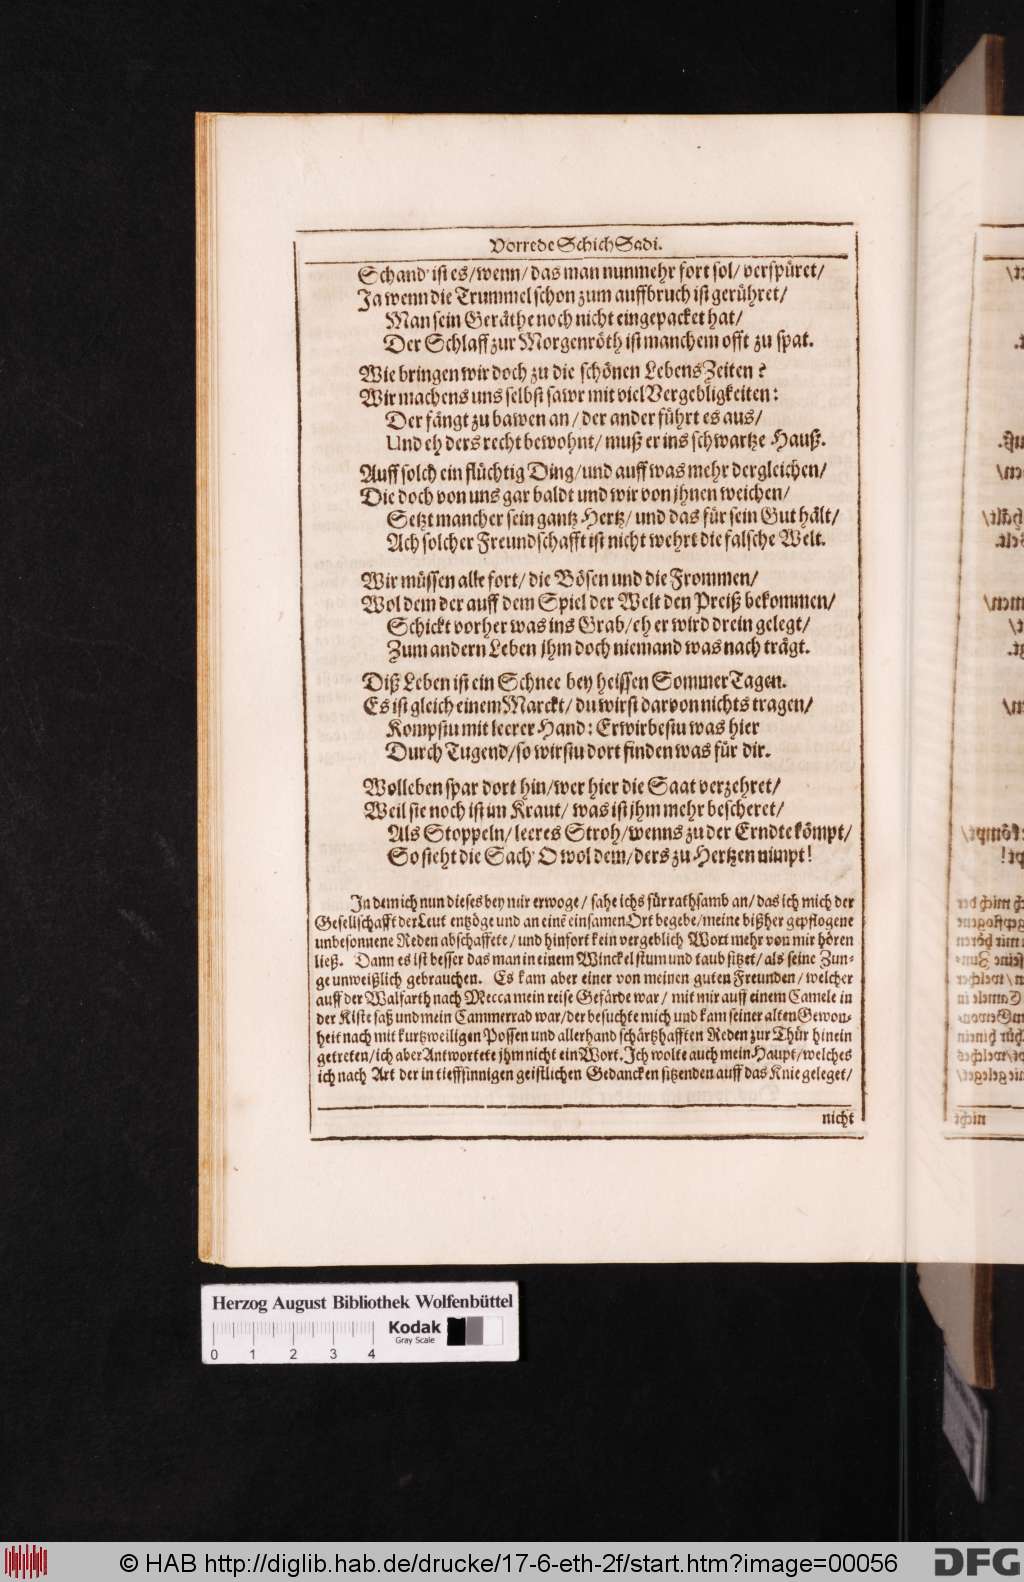 Vorrede Schich Sadi.
Schand' ist es/ wenn/ das man nunmehr fort sol/ verspüret/
Ja wenn die Trummel schon zum auffbruch ist gerühret/
Man sein Geräthe noch nicht eingepacket hat/
Der Schlaff zur Morgenröth ist manchem offt zu spat.
Wie bringen wir doch zu die schönen Lebens Zeiten?
Wir machens uns selbst sawr mit viel Vergebligkeiten:
Der fängt zu bawen an/ der ander führt es aus/
Und eh ders recht bewohnt/ muß er ins schwartze Hauß.
Auff solch ein flüchtig Ding/ und auff was mehr dergleichen/
Die doch von uns gar baldt und wir von jhnen weichen/
Setzt mancher sein gantz Hertz/ und das für sein Gut hält/
Ach solcher Freundschafft ist nicht wehrt die falsche Welt.
Wir müssen alle fort/ die Bösen und die Frommen/
Wol dem der auff dem Spiel der Welt den Preiß bekommen/
Schickt vorher was ins Grab/ eh er wird drein gelegt/
Zum andern Leben jhm doch niemand was nach trägt.
Diß Leben ist ein Schnee bey heissen Sommer Tagen.
Es ist gleich einem Marckt/ du wirst darvon nichts tragen/
Kompstu mit leerer Hand: Erwirbestu was hier
Durch Tugend/ so wirstu dort finden was für dir.
Wolleben spar dort hin/ wer hier die Saat verzehret/
Weil sie noch ist im Kraut/ was ist jhm mehr bescheret/
Als Stoppeln/ leeres Stroh/ wenns zu der Erndte kömpt/
So steht die Sach' O wol dem/ ders zu Hertzen nimpt!
In dem ich nun dieses bey mir erwoge/ sahe ichs für rathsamb an/ das ich mich der
Gesellschafft der Leut entzöge und an einē einsamen Ort begebe/ meine bißher gepflogene
unbesonnene Reden abschaffete/ und hinfort kein vergeblich Wort mehr von mir hören
ließ. Dann es ist besser das man in einem Winckel stum und taub sitzet/ als seine Zun-
ge unweißlich gebrauchen. Es kam aber einer von meinen guten Freunden/ welcher
auff der Walfarth nach Mecca mein reise Gefärde war/ mit mir auff einem Camele in
der Kiste saß und mein Cammerrad war/ der besuchte mich und kam seiner alten Gewon-
heit nach mit kurtzweiligen Possen und allerhand schärtzhafften Reden zur Thür hinein
getreten/ ich aber Antwortete jhm nicht ein Wort. Ich wolte auch mein Haupt/ welches
ich nach Art der in tieffsinnigen geistlichen Gedancken sitzenden auff das Knie geleget/
nicht
Herzog August Bibliothek Wolfenbüttel
Kodak
Gray Scale
0 1 2 3 4
© HAB http://diglib.hab.de/drucke/17-6-eth-2f/start.htm?image=00056
DFG